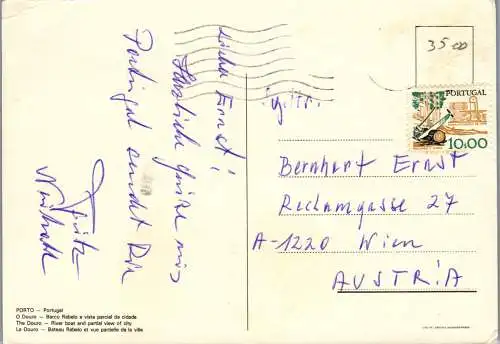 Lieber Ernst!
Herzliche Grüße aus
Portugal sendet Dir
Fritz
35 00
PORTUGAL
10$00
Bernhart Ernst
Reclamgasse 27
A-1220 Wien
AUSTRIA
PORTO — Portugal
O Douro — Barco Rabelo e vista parcial da cidade
The Douro — River boat and partial view of city
Le Douro — Bateau Rabelo et vue partielle de la ville